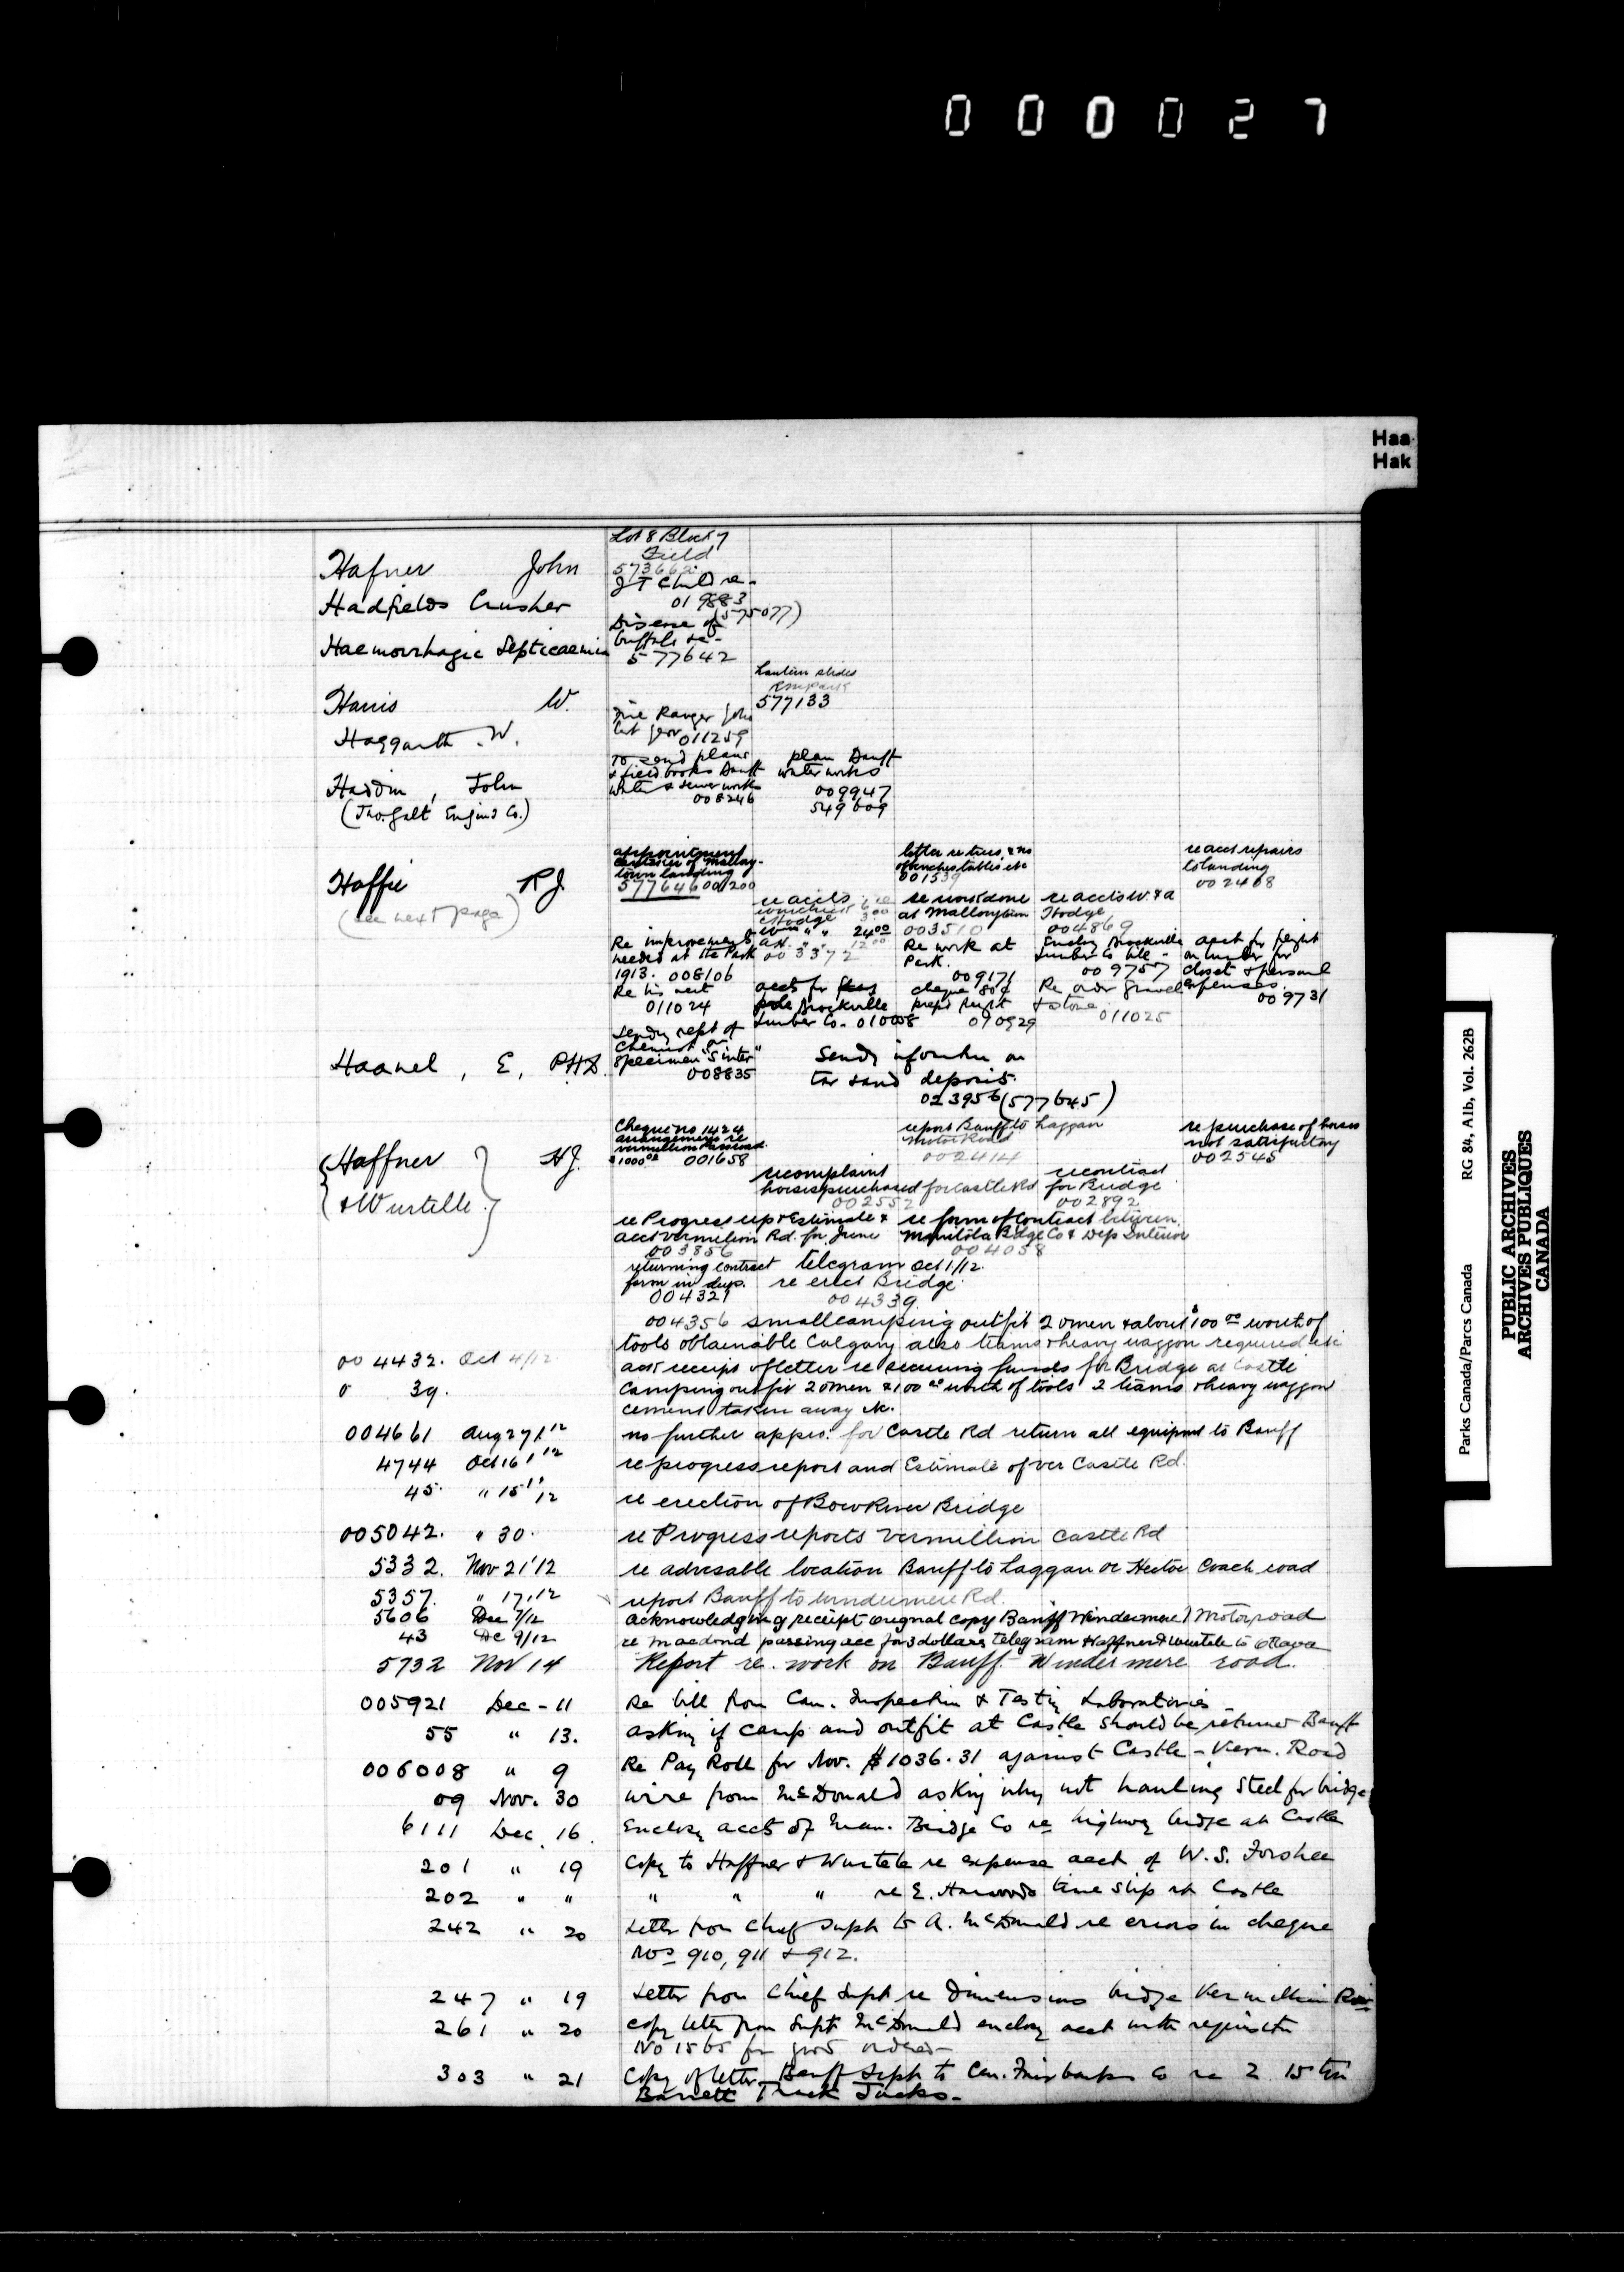 000027
Haa
Hak
Lot 8 Block 7
Field
573662
Hafner John
J T Child re-
019883
Hadfields Crusher
(575077)
Disease of
buffalo re-
Haemorrhagic Septicaemia
577642
Lantern slides
577133
Harris W.
Fire Ranger John
011259
Haggarth W.
To send plans
& field books Banff
water & sewer works
008246
plan Banff
water works
009947
549609
Haddin, John
(Jno. Galt Engin'g Co.)
appointment
caretaker of Mallory-
town landing
577646 001200
letter re trees, & no
of benches tables etc
001539
re acct repairs
to landing
002468
Haffie R J
(see next page)
re accts
Hodge 3.00
24.00
12.00
003372
re work done
at Mallorytown
003510
re accts W. & A
Hodge
004869
Re improvements
needed at the Park
1913. 008106
Re work at
Park.
009171
Enclosg Brockville
Lumber Co bill -
009757
acct for freight
on lumber for
closet & personal
expenses.
009731
Re his acct
011024
acct for flag
pole Brockville
Lumber Co. 010008
cheque 80¢
prepd freight
010929
Re order gravel
& stone
011025
Sendg rept of
Chemist on
specimen "Sinter"
008835
Haanel, E, PHD.
Sendg information on
tar sand deposits.
023956 (577645)
Cheque no 1424
arrangements re
vermillion Pass road.
$1000.00 001658
report Banff to Laggan
Motor Road
002414
re purchase of horses
not satisfactory
002545
Haffner H J.
& Wurtelle
re complaint
horses purchased for Castle Rd
002552
re contract
for Bridge
002892
re Progress rep & Estimate &
acct Vermilion Rd. for June
003856
re form of Contract between
Manitoba Bdge Co & Dep Interior
004038
returning contract
form in dup.
004321
telegram Oct 1/12.
re erect Bridge
004339.
004356 small camping outfit 20 men & about $100.00 worth of
tools obtainable Calgary also teams & heavy waggon required etc
004432. Oct 4/12 ack receipt of letter re securing funds for Bridge at Castle
0 39. Camping outfit 20 men & 100.00 worth of tools 2 teams & heavy waggon
cement taken away etc.
004661 Aug 27/12 no further appro. for Castle Rd return all equipmt to Banff
4744 Oct 16/12 re progress report and Estimate of ver Castle Rd.
45. " 15/12 re erection of Bow River Bridge
005042. " 30. re Progress reports Vermillion Castle Rd
5332. Nov 21/12 re advisable location Banff to Laggan or Hector Coach road
5357. " 17/12 report Banff to Windermere Rd.
5606 Dec 7/12 acknowledging receipt orignal copy Banff Windermere Motor road
43 De 9/12 re Macdond passing acc for 3 dollars telegram Haffner & Wurtele to Ottawa
5732 Nov 14 Report re. work on Banff - Windermere road.
005921 Dec - 11 Re bill from Can. Inspection & Testing Laboratories -
55 " 13. asking if camp and outfit at Castle should be returned Banff
006008 " 9 Re Pay Roll for Nov. $1036.31 against Castle - Verm. Road
09 Nov. 30 wire from McDonald asking why not hauling steel for bridge
6111 Dec. 16. Enclosg accts of Man. Bridge Co re highway bridge at Castle
201 " 19 Copy to Haffner & Wurtele re expense acct of W. S. Forshee
202 " " " " " re E. Harwoods time slip at Castle
242 " 20 Letter from Chief Supt to A. McDonald re errors in cheque
Nos 910, 911 & 912.
247 " 19 Letter from Chief Supt re dimensions bridge Vermillion River
261 " 20 copy letter from Supt McDonald enclosg acct with requisition
No 1565 for goods ordered -
303 " 21 Copy of letter Banff Supt to Can. Fairbanks Co re 2 15 ton
Barrett Track Jacks.-
Parks Canada/Parcs Canada RG 84, A1b, Vol. 262B
PUBLIC ARCHIVES
ARCHIVES PUBLIQUES
CANADA